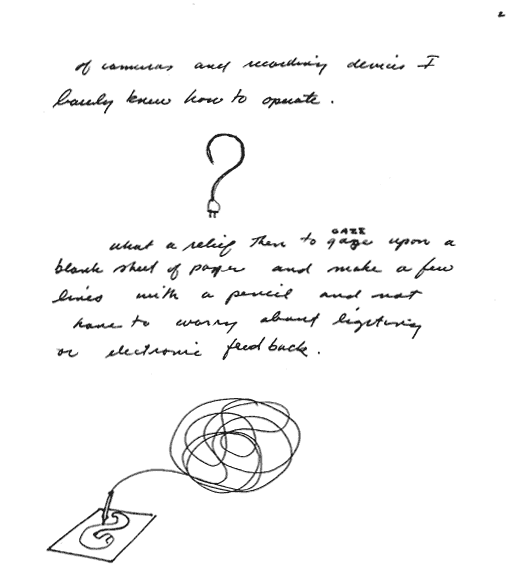 2
of cameras and recording devices I
barely knew how to operate.
what a relief then to gaze upon a
GAZE
blank sheet of paper and make a few
lines with a pencil and not
have to worry about lighting
or electronic feedback.